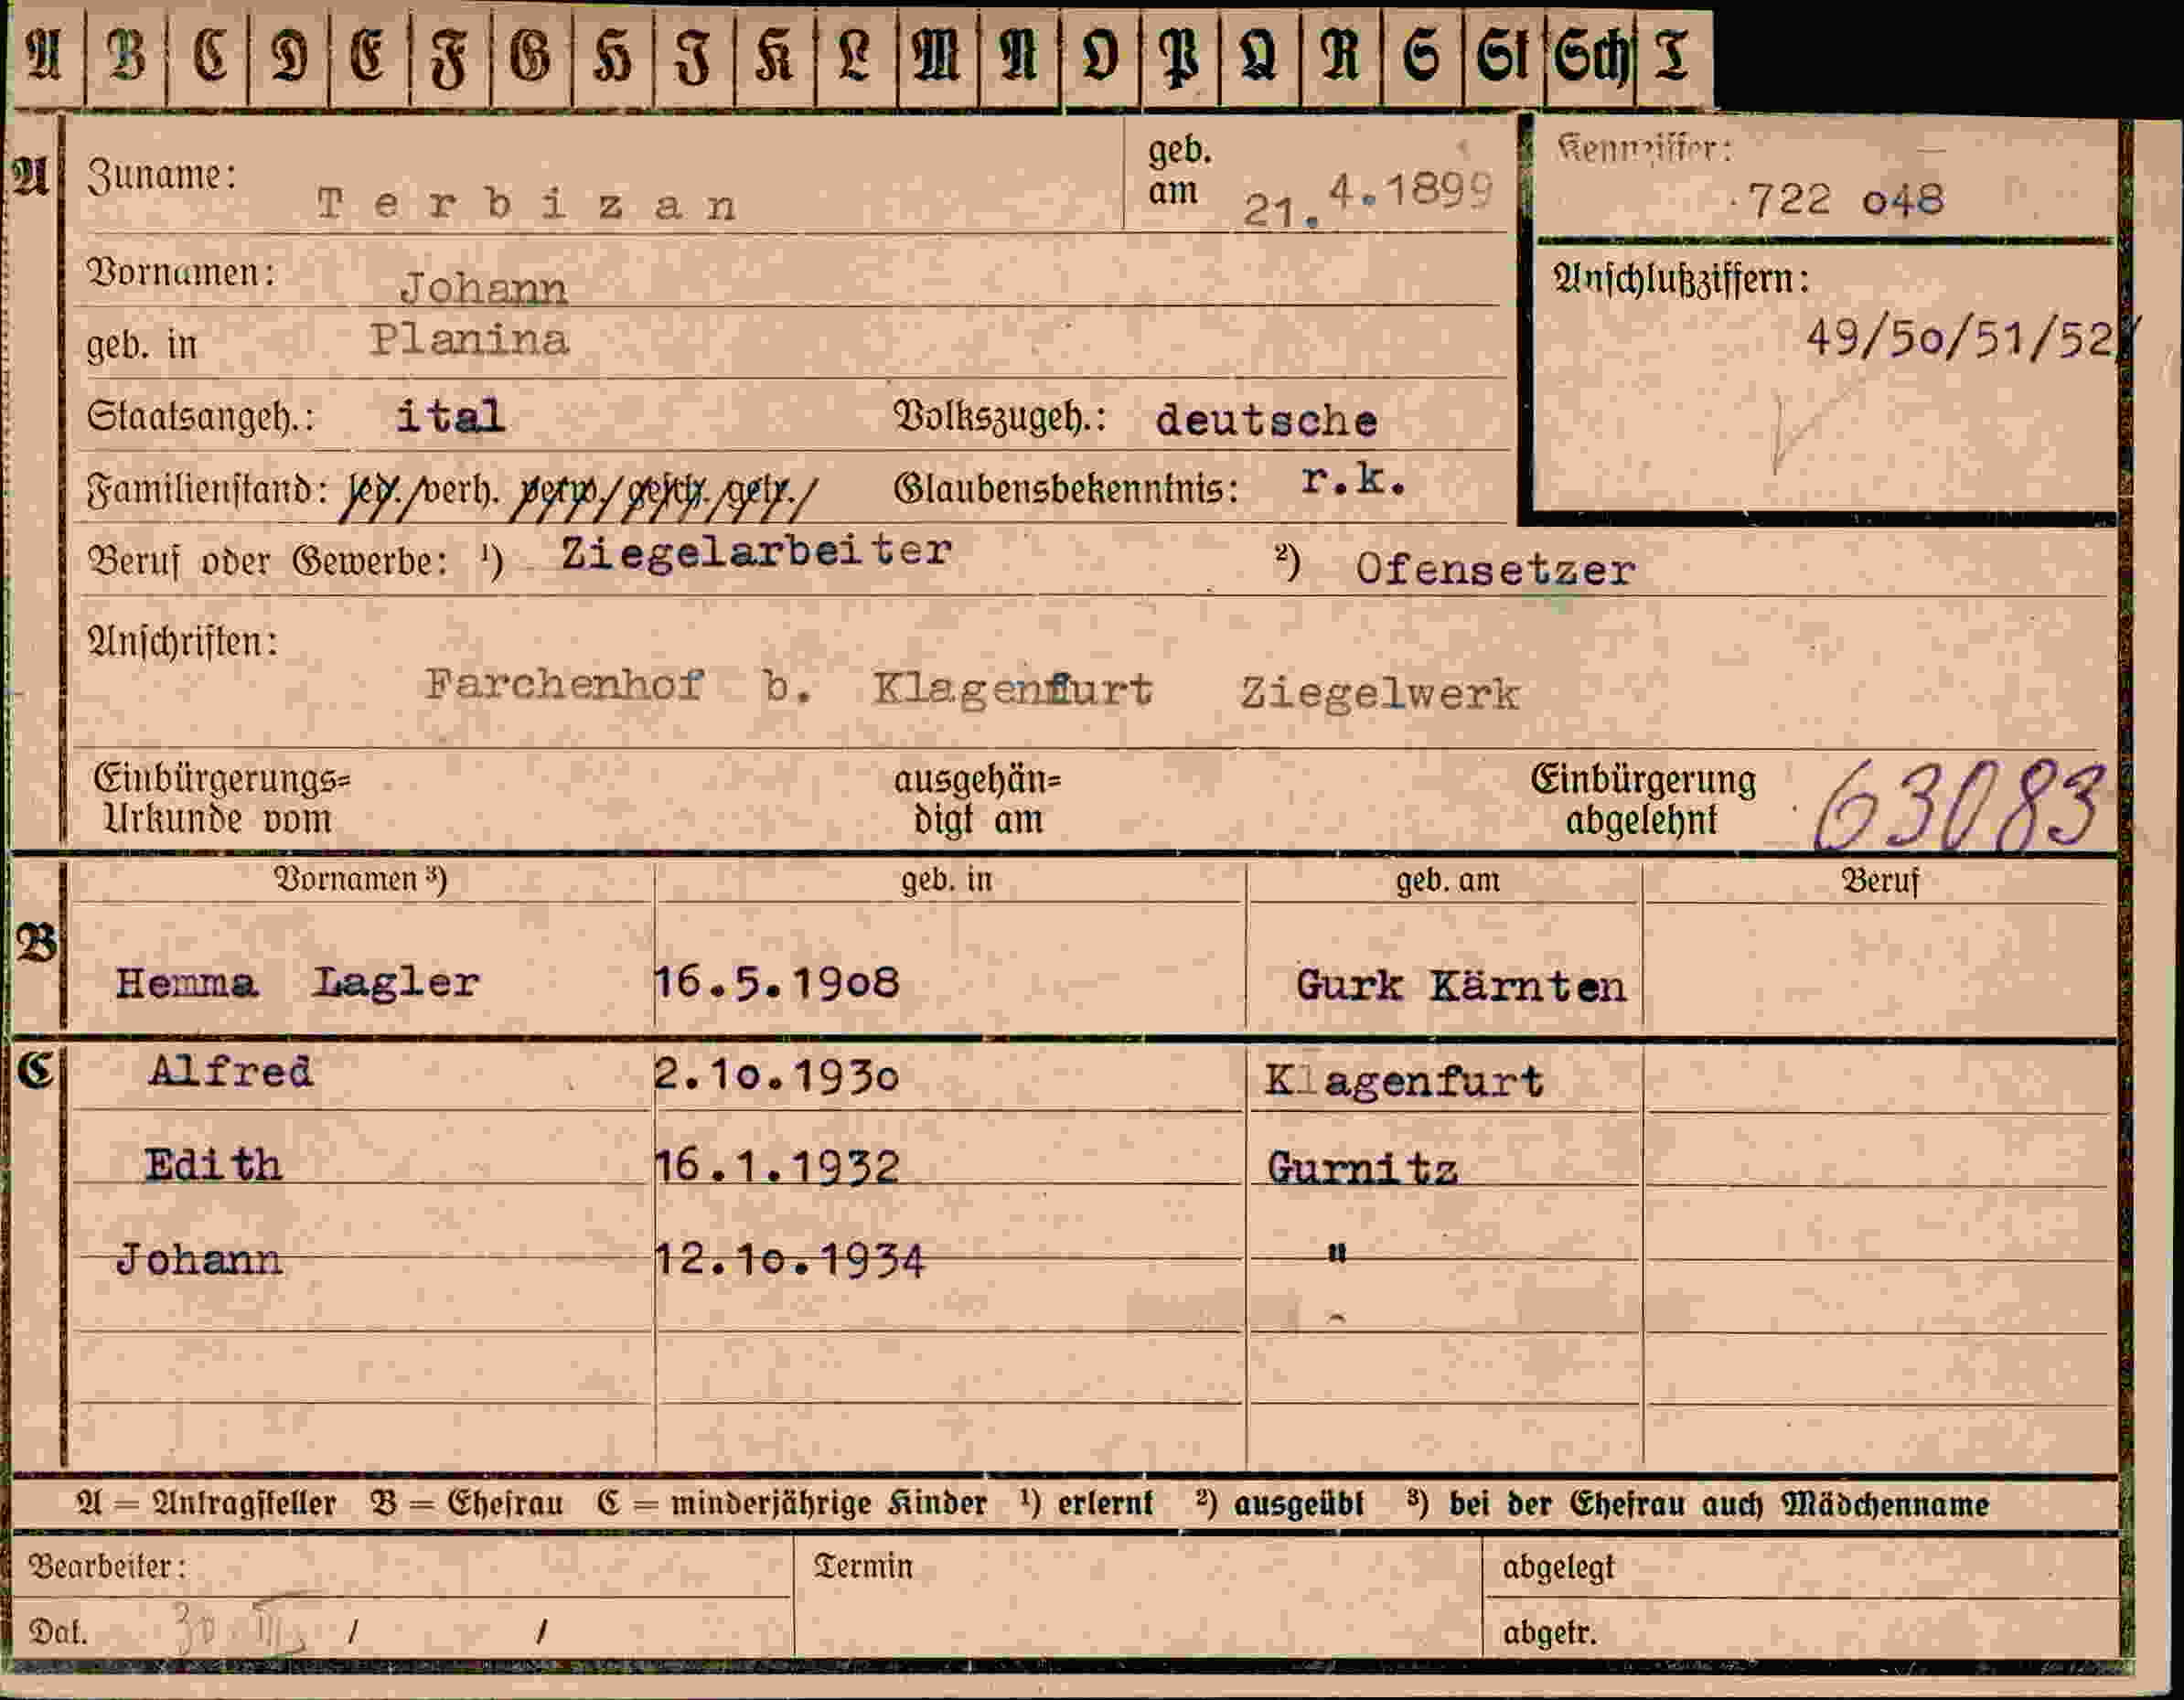 A B C D E F G H I K L M N O P Q R S St Sch T
A Zuname: Terbizan geb. am 21.4.1899 Kennziffer: 722 o48
Vornamen: Johann Anschlußziffern:
geb. in Planina 49/5o/51/52/
Staatsangeh.: ital Volkszugeh.: deutsche
Familienstand: led./verh. verw./gesch./getr./ Glaubensbekenntnis: r.k.
Beruf oder Gewerbe: ¹) Ziegelarbeiter ²) Ofensetzer
Anschriften:
Farchenhof b. Klagenfurt Ziegelwerk
Einbürgerungs= ausgehän= Einbürgerung 63083
Urkunde vom digt am abgelehnt
Vornamen ³) geb. in geb. am Beruf
B
Hemma Lagler 16.5.19o8 Gurk Kärnten
C Alfred 2.1o.193o Klagenfurt
Edith 16.1.1932 Gurnitz
Johann 12.1o.1934 "
A = Antragsteller B = Ehefrau C = minderjährige Kinder ¹) erlernt ²) ausgeübt ³) bei der Ehefrau auch Mädchenname
Bearbeiter: Termin abgelegt
Dat. 30. / / abgetr.